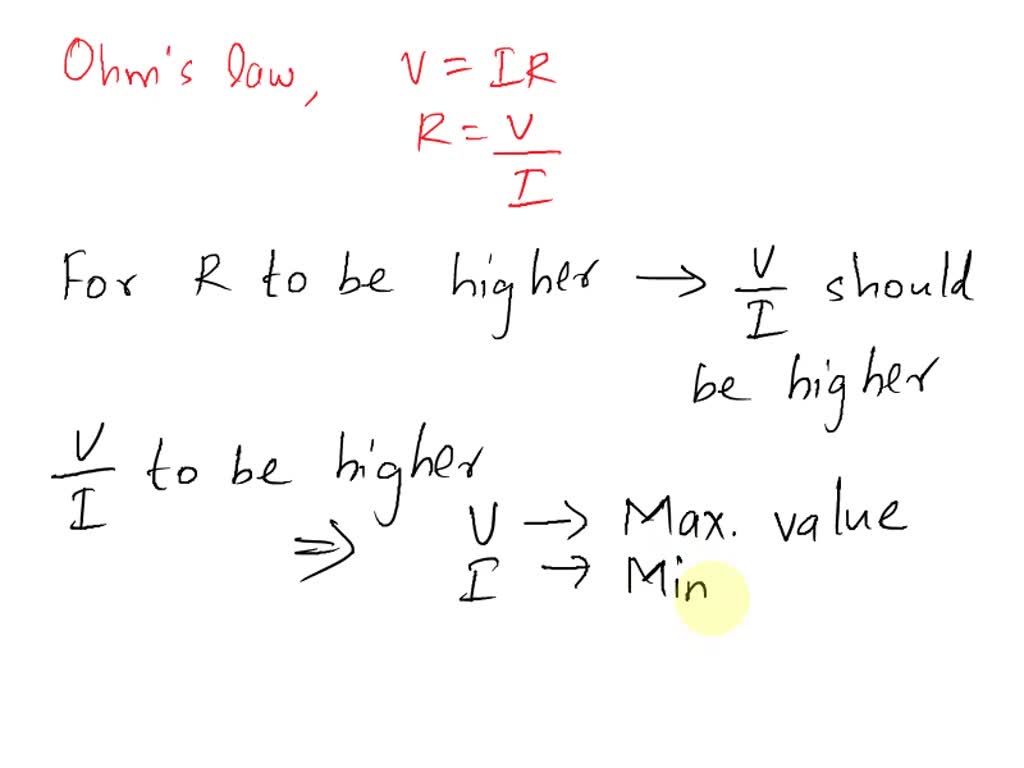 Ohm's law, V = IR
R = V/I
For R to be higher → V/I should
be higher
V/I to be higher
⇒ V → Max. value
I → Min